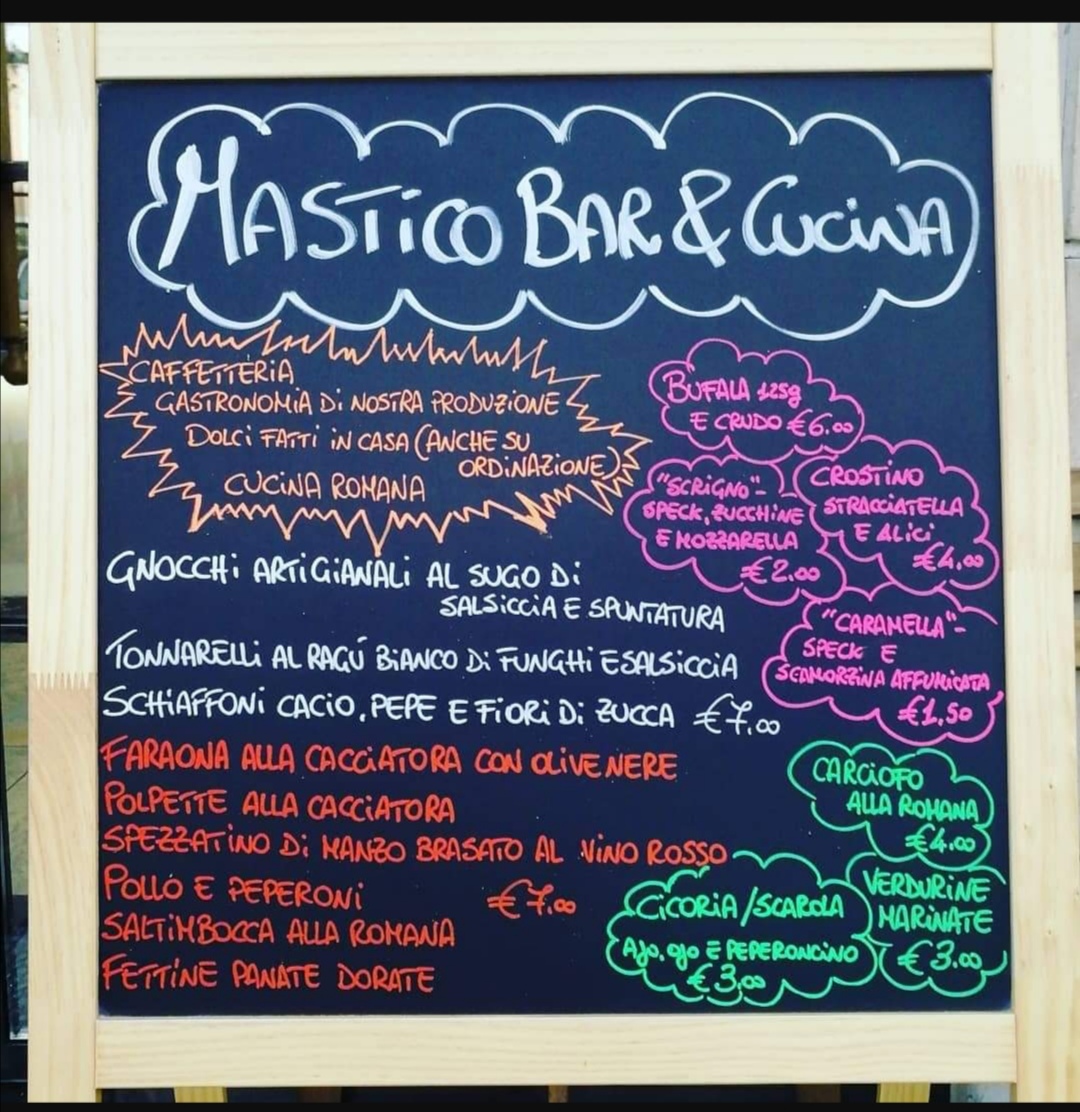 MASTICO BAR & CUCINA
CAFFETTERIA
GASTRONOMIA DI NOSTRA PRODUZIONE
DOLCI FATTI IN CASA (ANCHE SU
ORDINAZIONE)
CUCINA ROMANA
BUFALA 125g
E CRUDO €6.00
"SCRIGNO"-
SPECK, ZUCCHINE
E MOZZARELLA
€2.00
CROSTINO
STRACCIATELLA
E ALICI
€4.00
"CARAMELLA"-
SPECK E
SCAMORZINA AFFUMICATA
€1.50
GNOCCHI ARTIGIANALI AL SUGO DI
SALSICCIA E SPUNTATURA
TONNARELLI AL RAGÚ BIANCO DI FUNGHI E SALSICCIA
SCHIAFFONI CACIO, PEPE E FIORI DI ZUCCA €7.00
FARAONA ALLA CACCIATORA CON OLIVE NERE
POLPETTE ALLA CACCIATORA
SPEZZATINO DI MANZO BRASATO AL VINO ROSSO
POLLO E PEPERONI €7.00
SALTIMBOCCA ALLA ROMANA
FETTINE PANATE DORATE
CARCIOFO
ALLA ROMANA
€4.00
CICORIA/SCAROLA
AJO, OJO E PEPERONCINO
€3.00
VERDURINE
MARINATE
€3.00